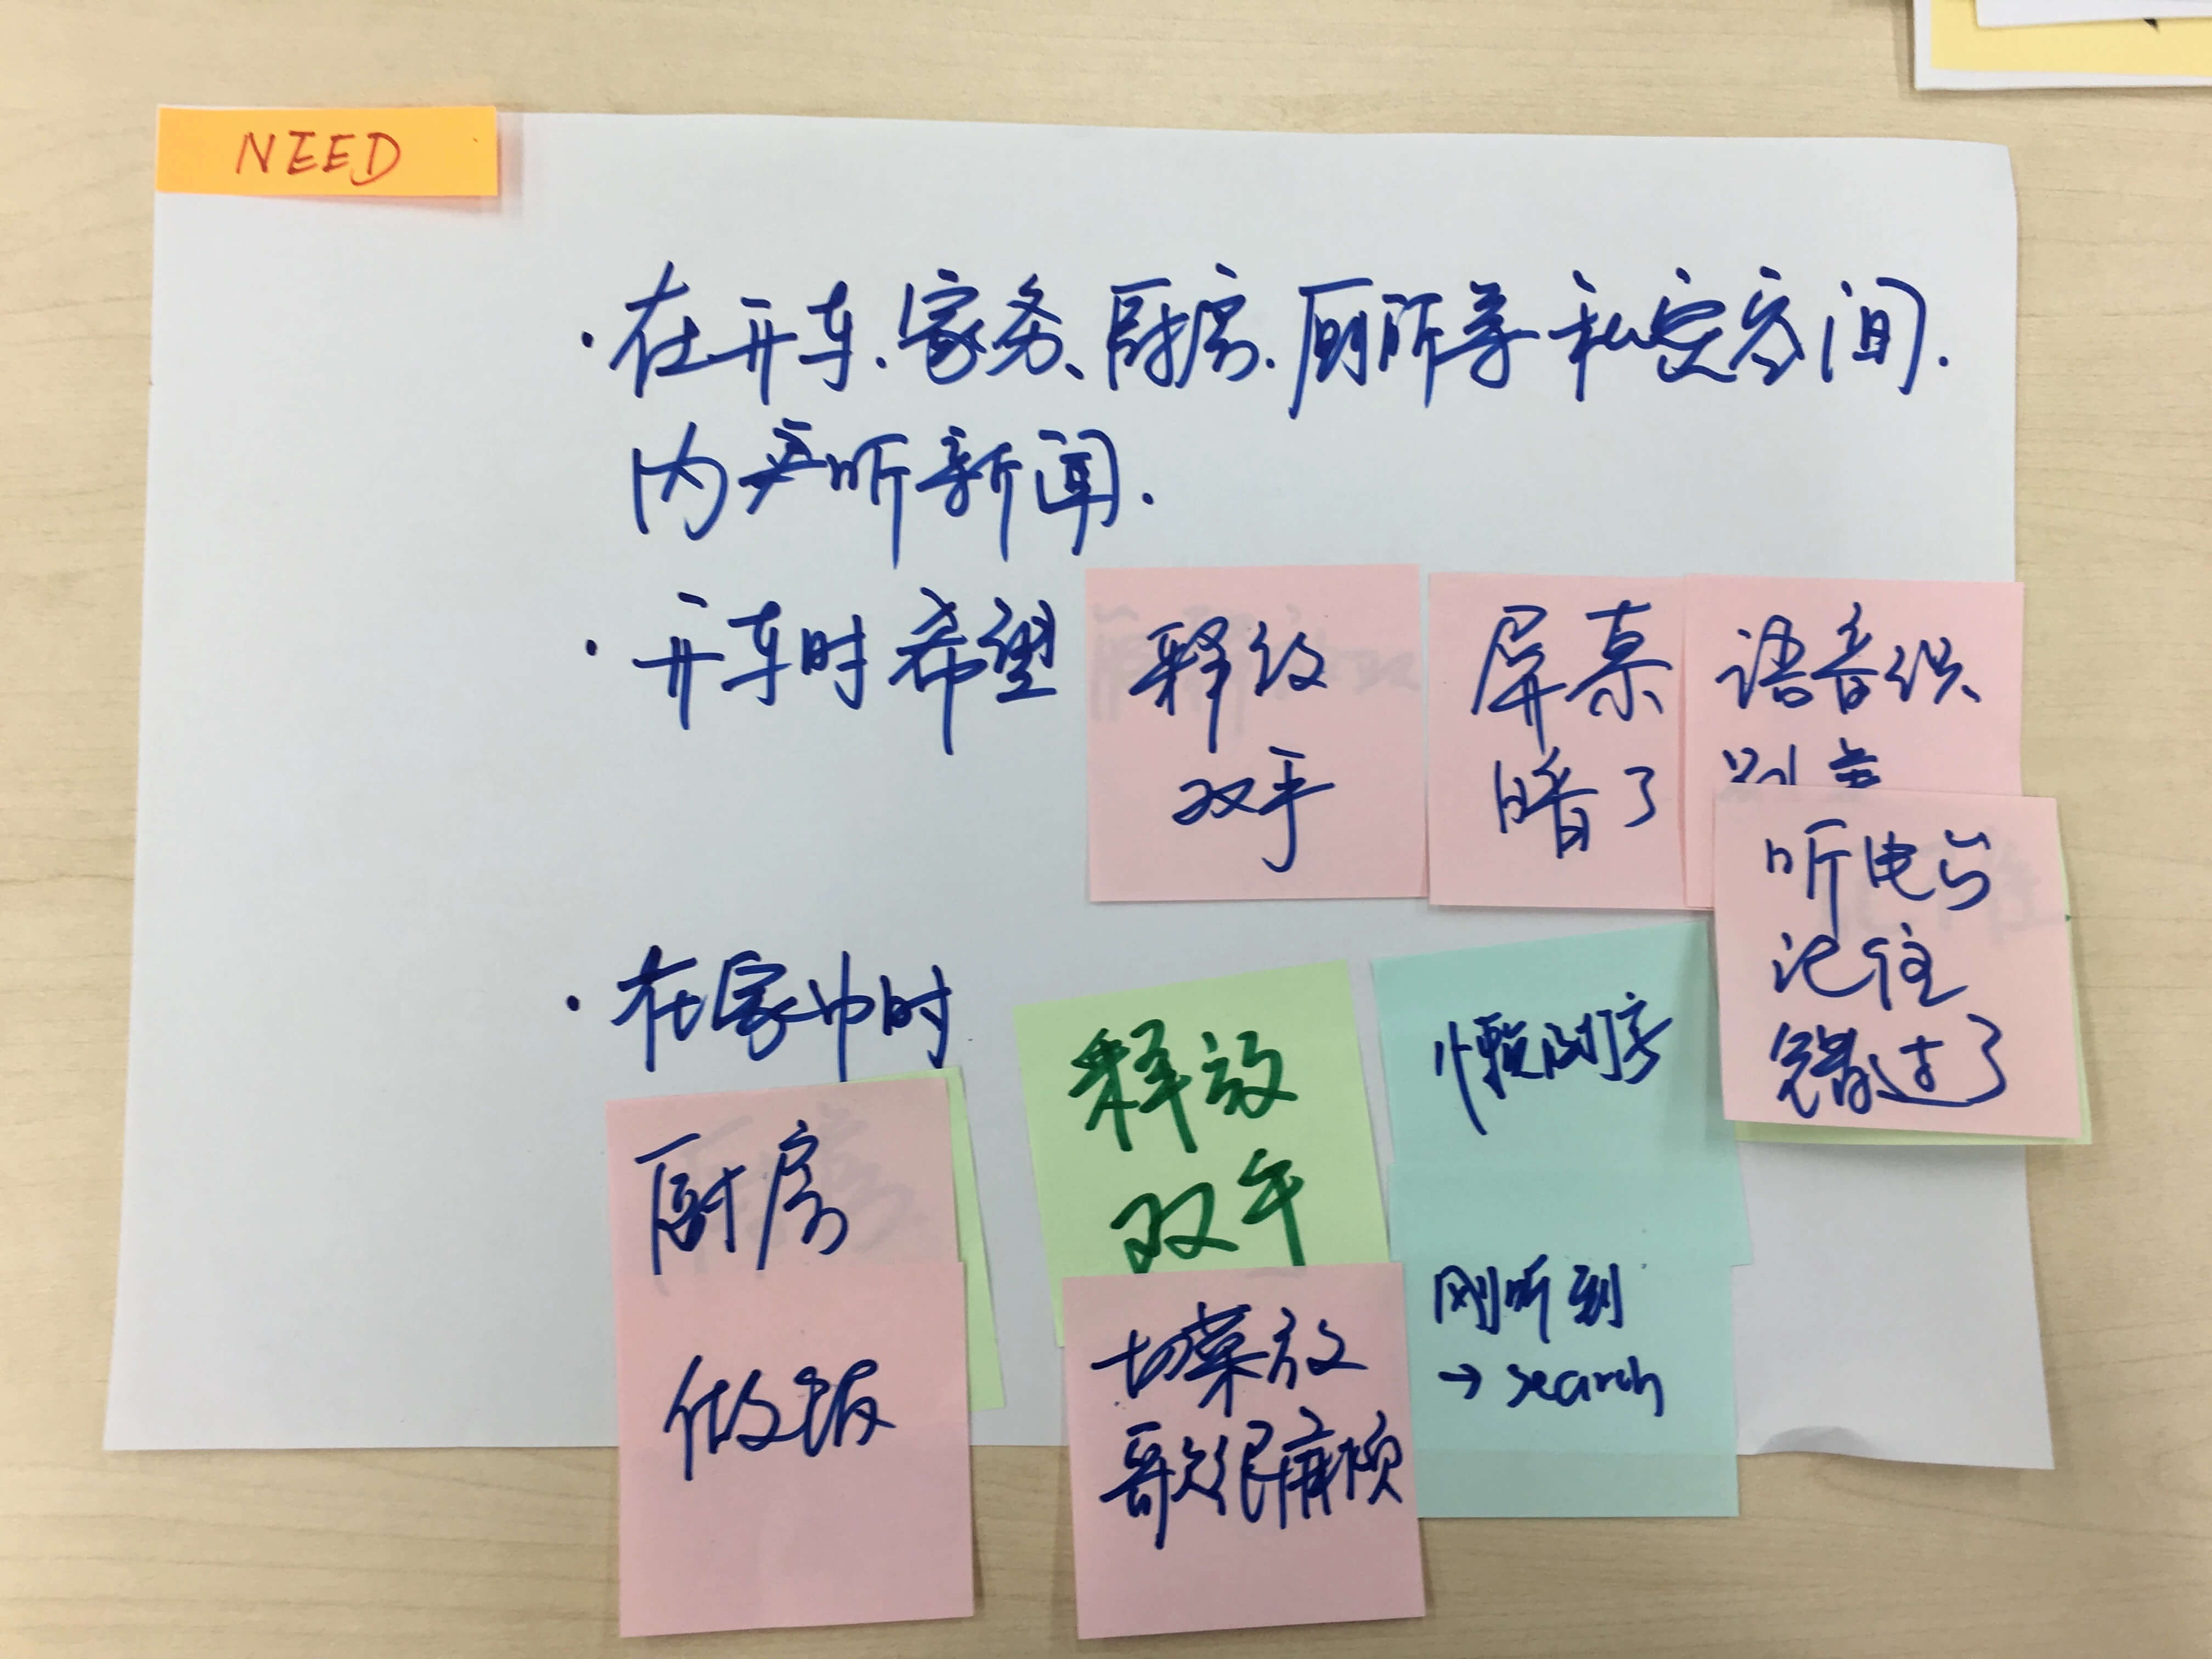 NEED
·在开车、家务、厨房、厕所等私密空间.
内 听新闻.
·开车时希望
释放
双手
屏幕
暗了
语音识
别差
听电台
记住
错过了
·在家中时
厨房
做饭
释放
双手
切菜放
歌很麻烦
懒
刚听到
→ search